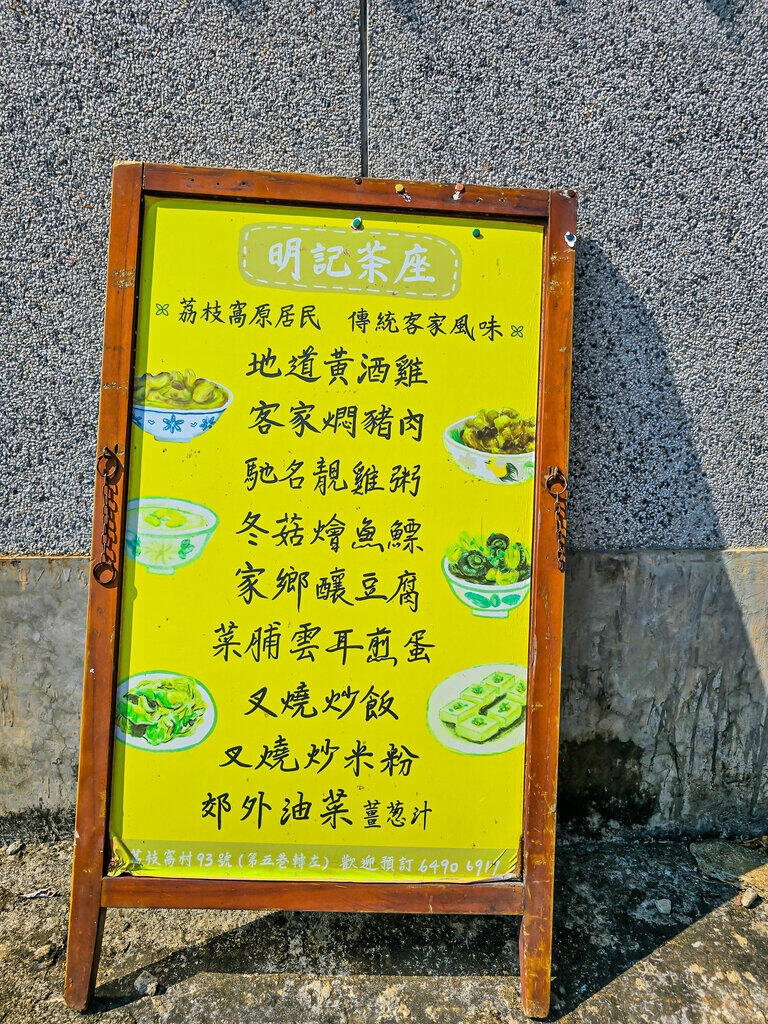 明記茶座
荔枝窩原居民 傳統客家風味
地道黃酒雞
客家燜豬肉
馳名靚雞粥
冬菇燴魚鰾
家鄉釀豆腐
菜脯雲耳煎蛋
叉燒炒飯
叉燒炒米粉
郊外油菜 薑葱汁
荔枝窩村93號(第五巷轉左) 歡迎預訂 6490 6917